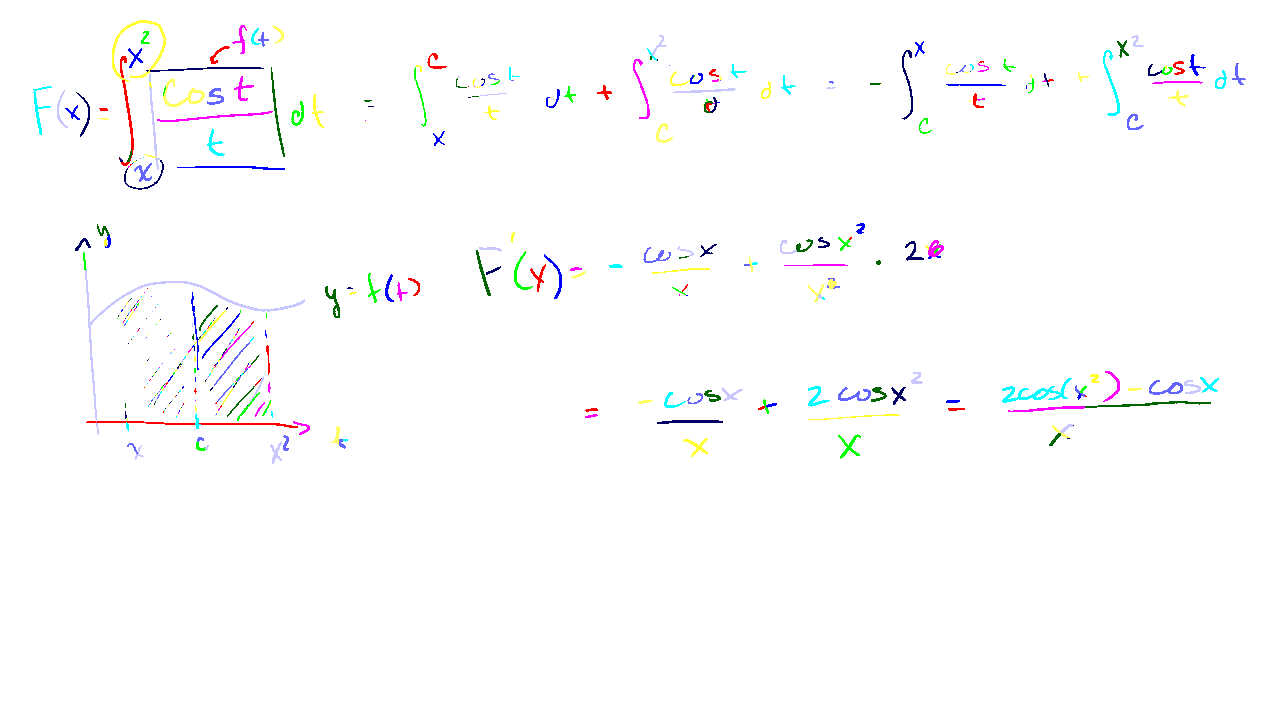 f(t)
F(x) = ∫_x^{x^2} cos t / t dt = ∫_x^c cos t / t dt + ∫_c^{x^2} cos t / t dt = - ∫_c^x cos t / t dt + ∫_c^{x^2} cos t / t dt
y
y = f(t)
x c x^2 t
F'(x) = - cos x / x + cos x^2 / x^2 · 2x
= - cos x / x + 2 cos x^2 / x = 2cos(x^2) - cos x / x